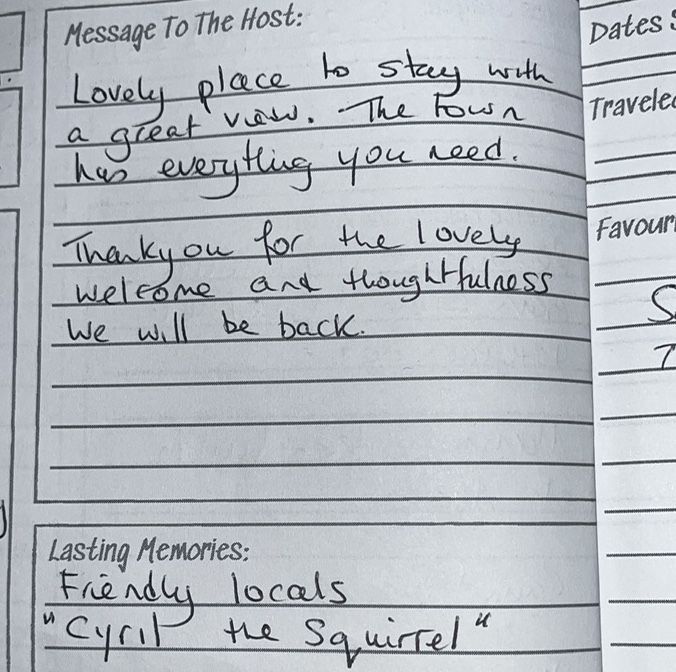 Message To The Host:
Lovely place to stay with
a great view. The town
has everything you need.
Thankyou for the lovely
welcome and thoughtfulness
We will be back.
Lasting Memories:
Friendly locals
"Cyril the Squirrel"
Dates